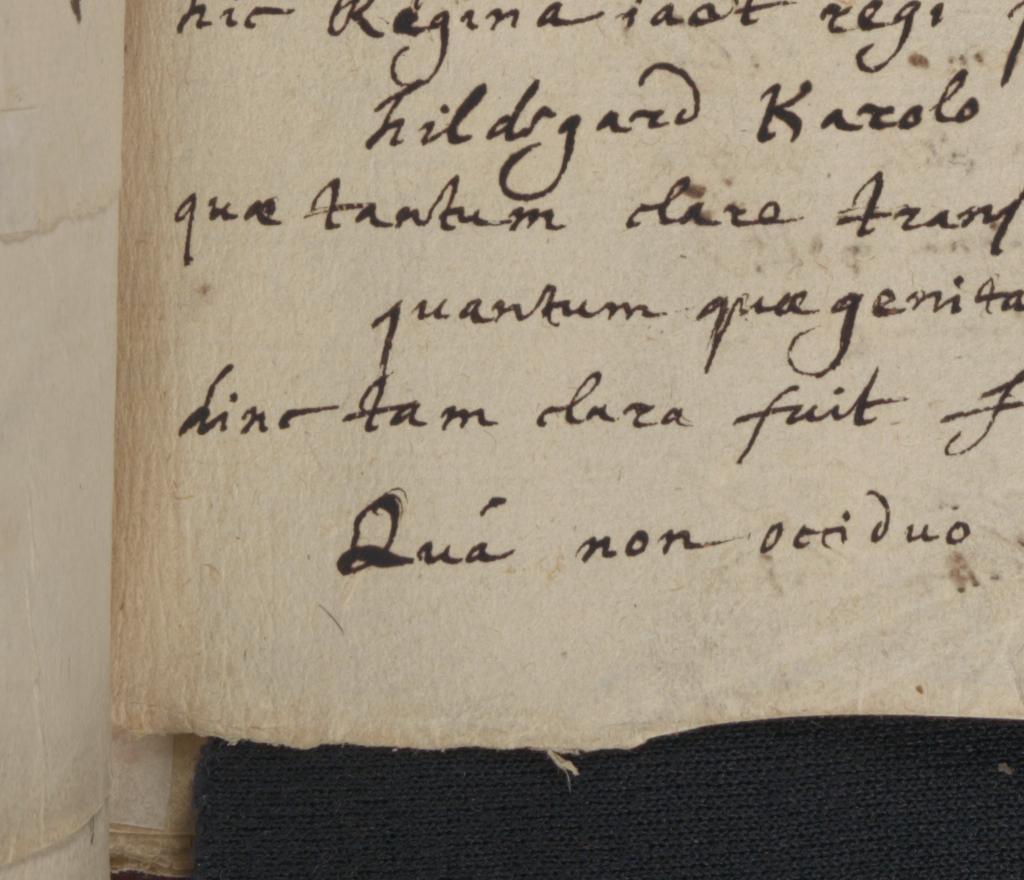 hic Regina iacet regi
hildegard Karolo
quæ tantum clare trans
quantum quæ genita
hinc tam clara fuit f
Quá non occiduo